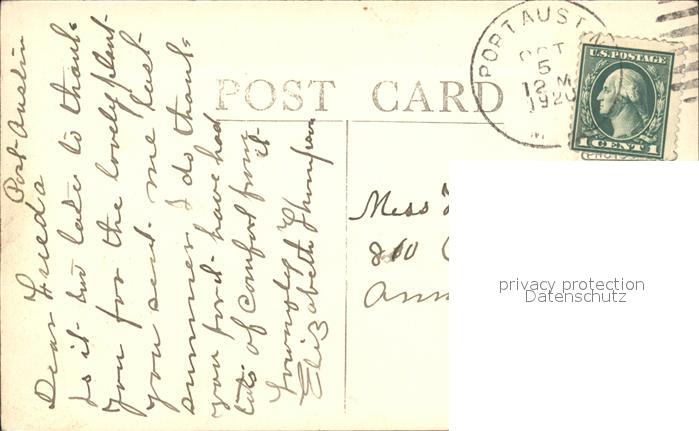 Port Austin
Dear Freda
Is it too late to thank
you for the lovely plant
you sent me last
summer I do thank
you for it have had
lots of comfort from it
Lovingly
Elizabeth Thompson
POST CARD
PORT AUSTIN
OCT
5
12 M
1920
M
U.S. POSTAGE
1 CENT 1
Miss
810
Ann
privacy protection
Datenschutz